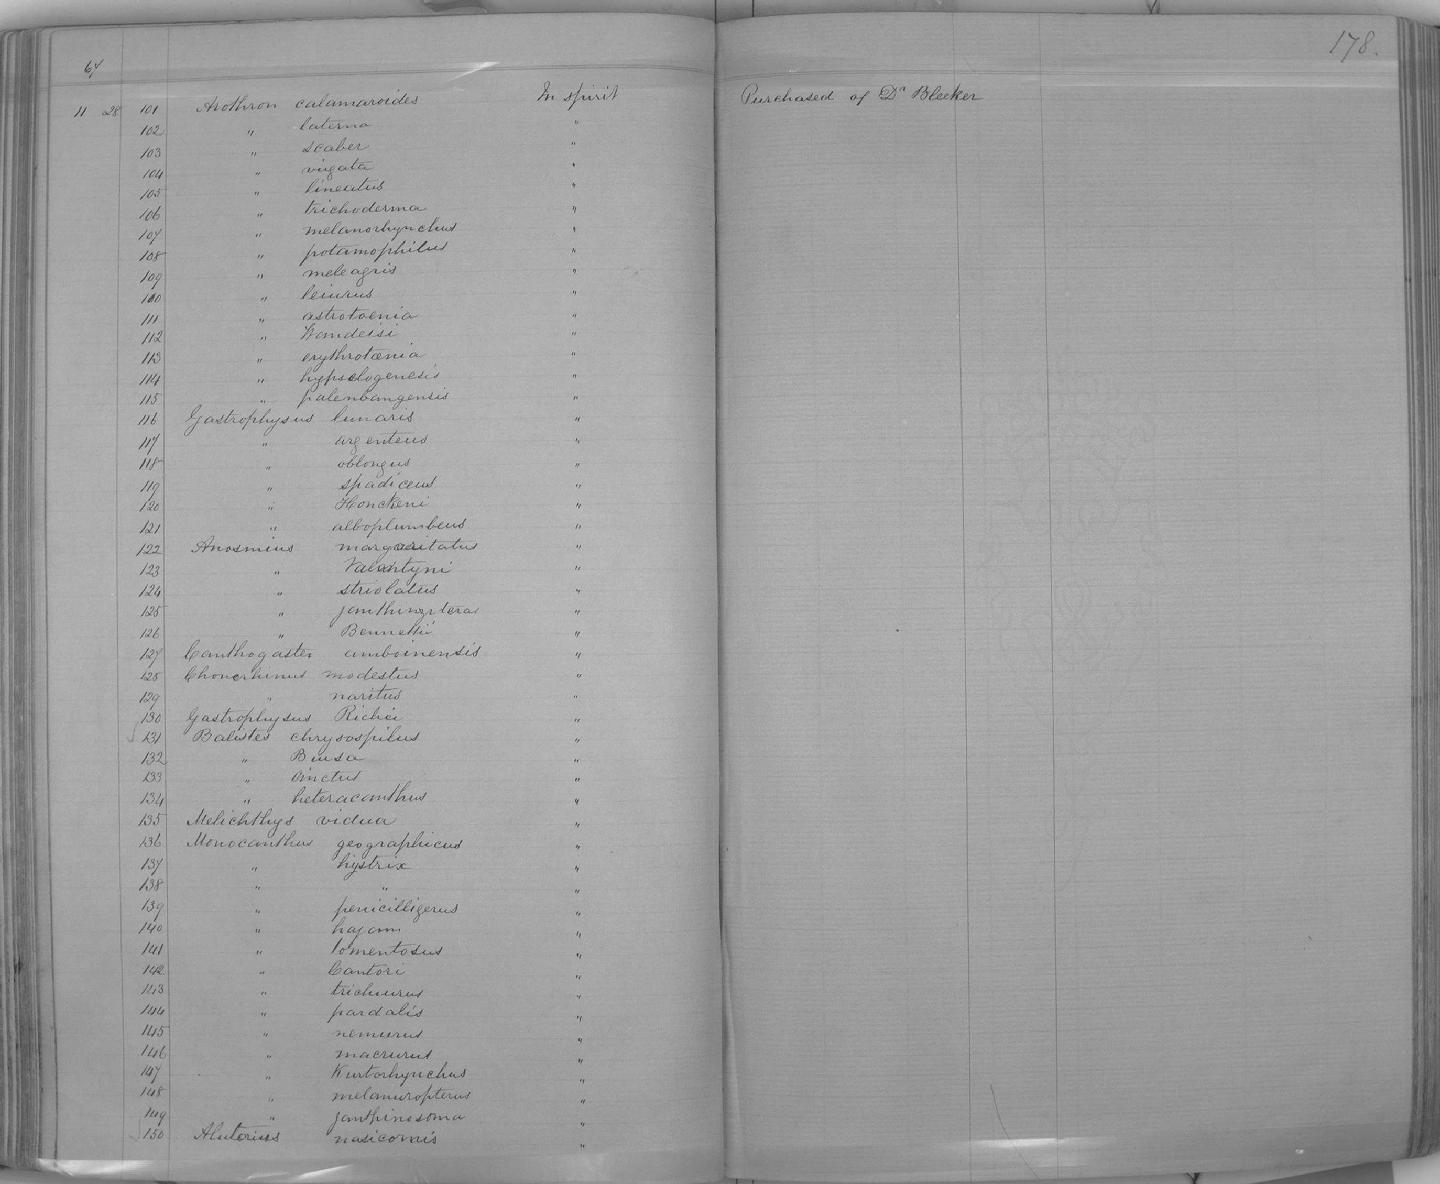 178.
67
11 28 101 Arothron calamaroides In spirit Purchased of Dr Bleeker
102 " laterna "
103 " scaber "
104 " virgata "
105 " lineatus "
106 " trichoderma "
107 " melanorhynchus "
108 " potamophilus "
109 " meleagris "
110 " leiurus "
111 " astrotaenia "
112 " "
113 " erythrotaenia "
114 " hypselogeneion "
115 " palenbangensis "
116 Gastrophysus lunaris "
117 " argenteus "
118 " oblongus "
119 " spadiceus "
120 " Honckeni "
121 " alboplumbeus "
122 Anosmius margaritatus "
123 " Valentyni "
124 " striolatus "
125 " janthinopterus "
126 " Bennetti "
127 Canthogaster amboinensis "
128 Chonerhinus modestus "
129 " naritus "
130 Gastrophysus Richei "
131 Balistes chrysospilus "
132 " Bursa "
133 " cinctus "
134 " heteracanthus "
135 Melichthys vidua "
136 Monocanthus geographicus "
137 " hystrix "
138 " " "
139 " penicilligerus "
140 " hajam "
141 " tomentosus "
142 " Cantori "
143 " trichurus "
144 " pardalis "
145 " nemurus "
146 " macrurus "
147 " Kurtorhynchus "
148 " melanuropterus "
149 " janthinosoma "
150 Aluterius nasicornis "